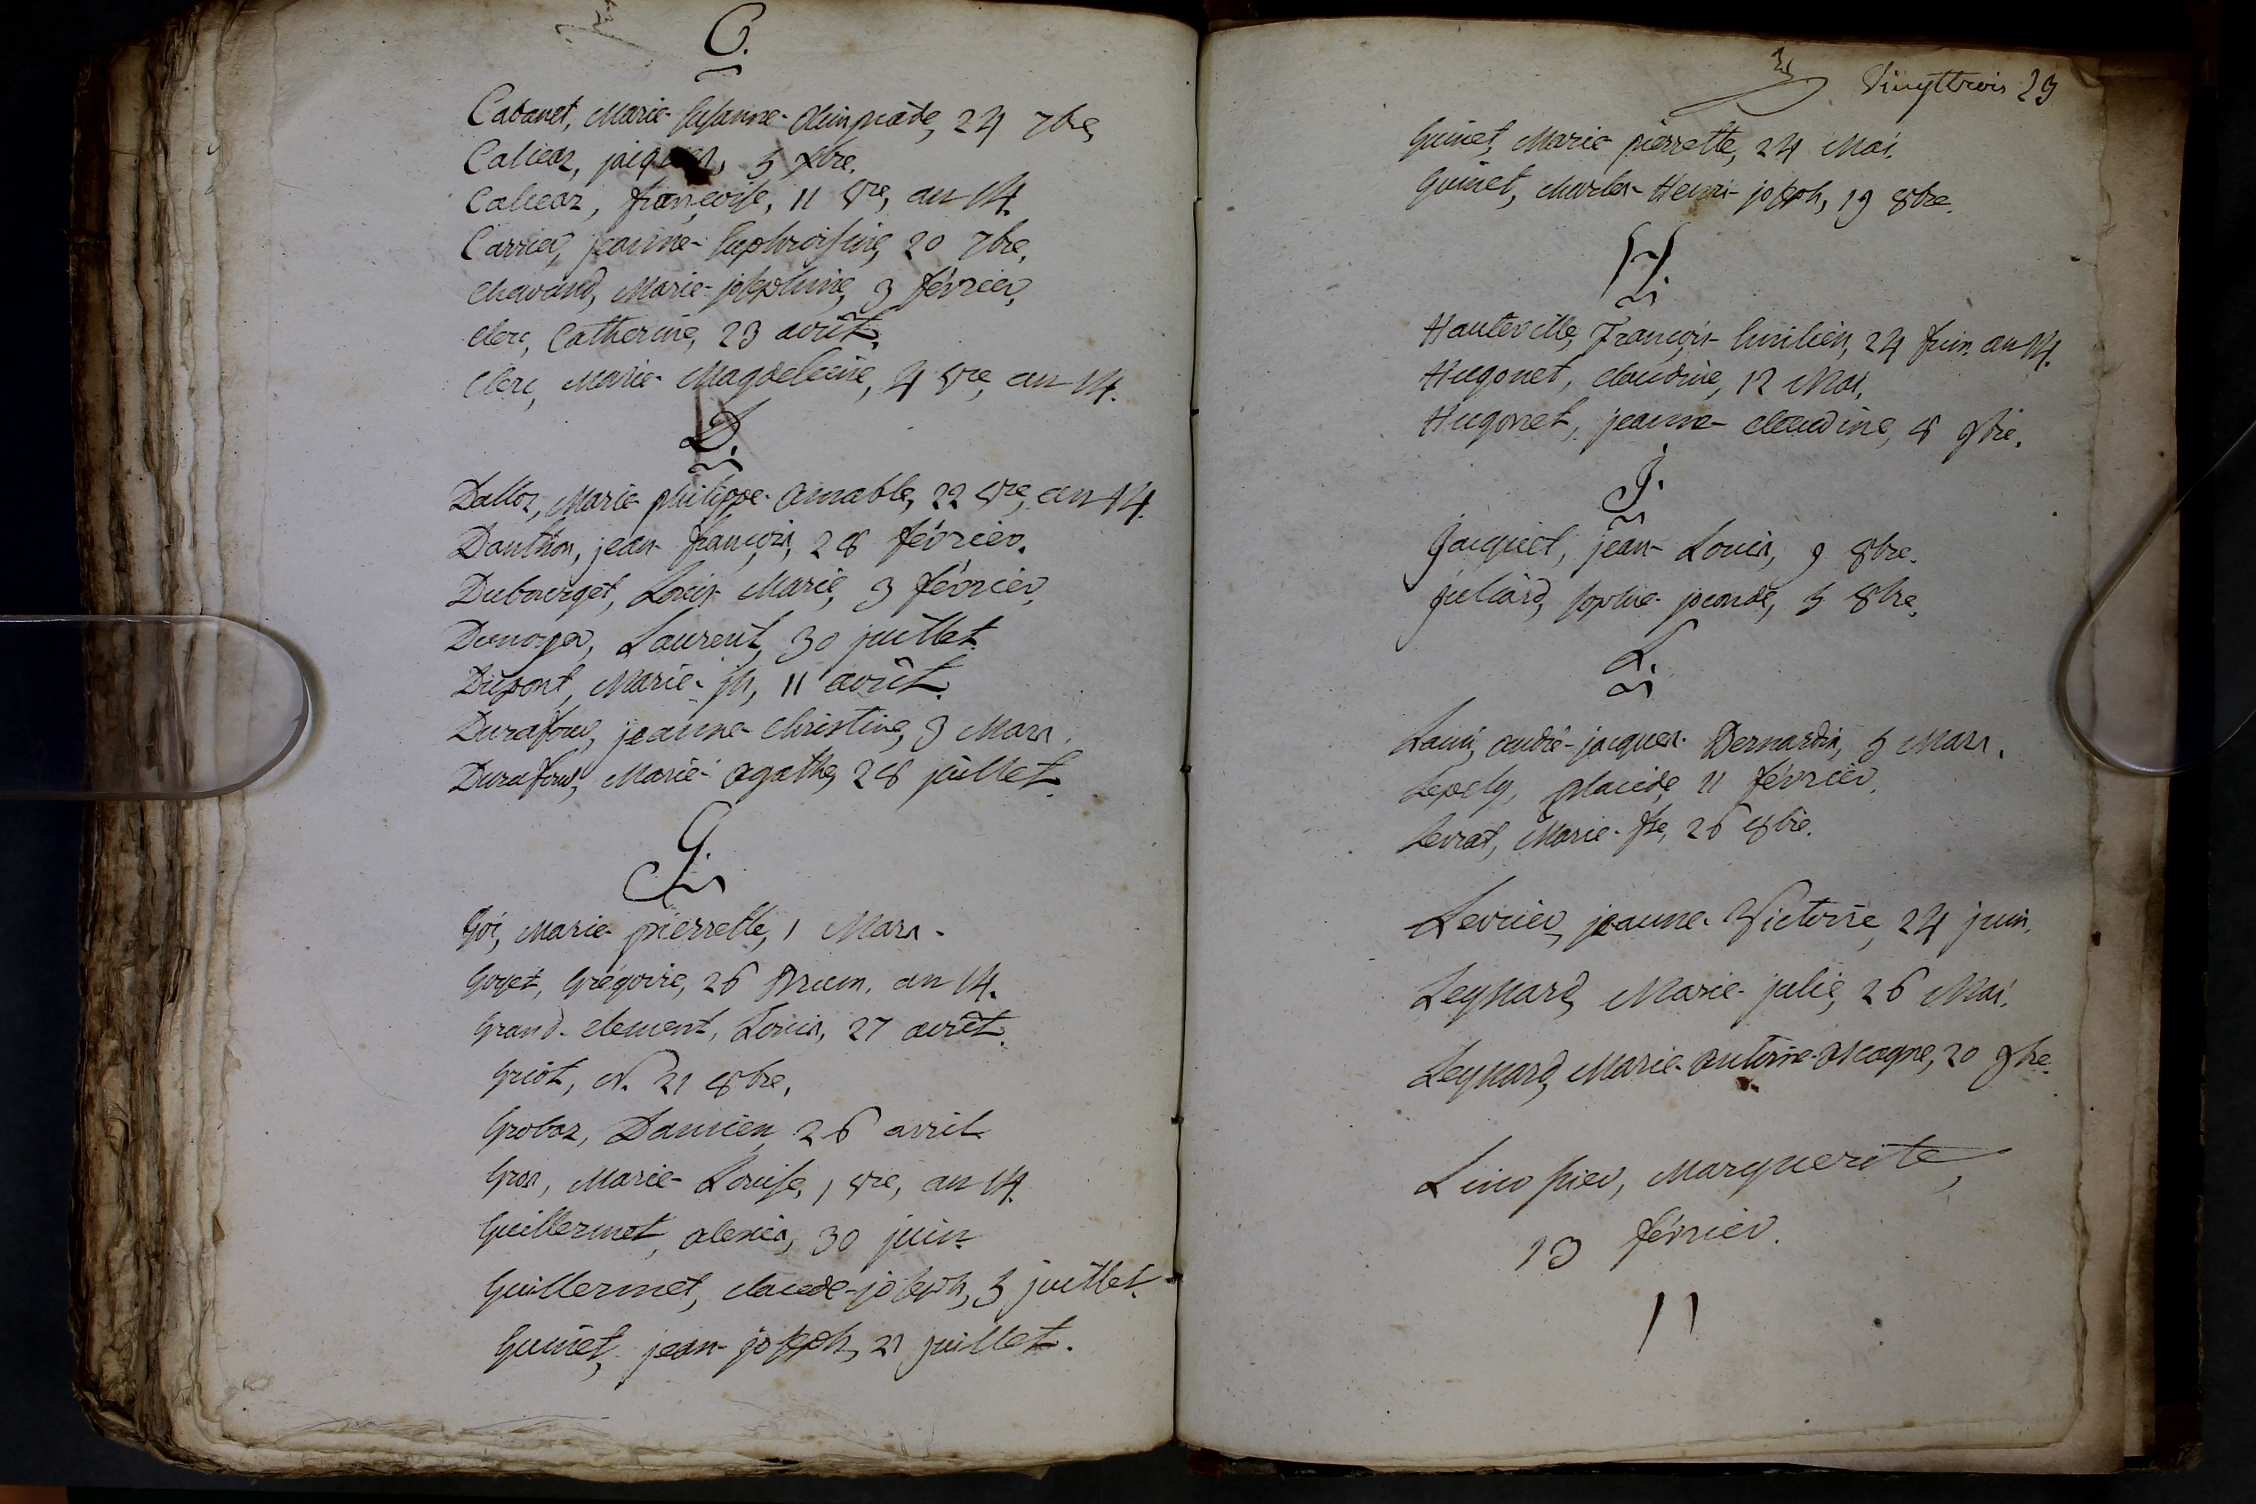 C.
Cabanet, Marie-Susanne-Olimpiade, 24 7bre,
Caliez, jacques, 5 xbre.
Caliez, françoise, 11 Vre, an 14.
Carrier, jeanne-Euphroisine, 20 7bre.
Chavand, Marie-joséphine, 3 février,
Clerc, Catherine, 23 avût.
Clerc, Marie-Magdeleine, 4 Vre, an 14.
D.
Dalloz, Marie-philippe-Amable, 22 Vre, an 14.
Danthon, jean-françois, 28 février.
Dubourget, Louis-Marie, 3 février,
Laurent, 30 juillet.
Dupont, Marie-jh, 11 avût.
Durafour, jeanne-Christine, 3 Mars.
Durafour, Marie-agathe, 28 juillet.
G.
Goi, Marie-pierrette, 1 Mars.
Goyet, Grégoire, 26 Brum. an 14.
Grand-clement, Louis, 27 avût.
Griot, N. 21 8bre.
Groboz, Damien, 26 avril.
Gros, Marie-Louise, 1 Vre, an 14.
Guillermet, alexis, 30 juin.
Guillermet, claude-joseph, 5 juillet.
Guinet, jean-joseph, 21 juillet.
Vingttrois 23
Guinet, Marie-pierrette, 24 Mai.
Guinet, Charles-Henri-joseph, 19 8bre.
H.
Hauteville, François-Emilien, 24 frim. an 14.
Hugonet, claudine, 12 Mai.
Hugonet, jeanne-claudine, 8 9bre.
J.
Jacquet, jean-Louis, 9 8bre.
Juliard, sophie-joconde, 5 8bre.
L.
andré-jacques-Bernardin, 5 Mars.
placide, 11 février.
Levrat, Marie-fse, 26 8bre.
Levrier, jeanne-Victoire, 24 juin.
Leyssard, Marie-julie, 26 Mai.
Leyssard, Marie-antoine-Ascagne, 20 9bre.
Linossier, Marguerite,
13 février.